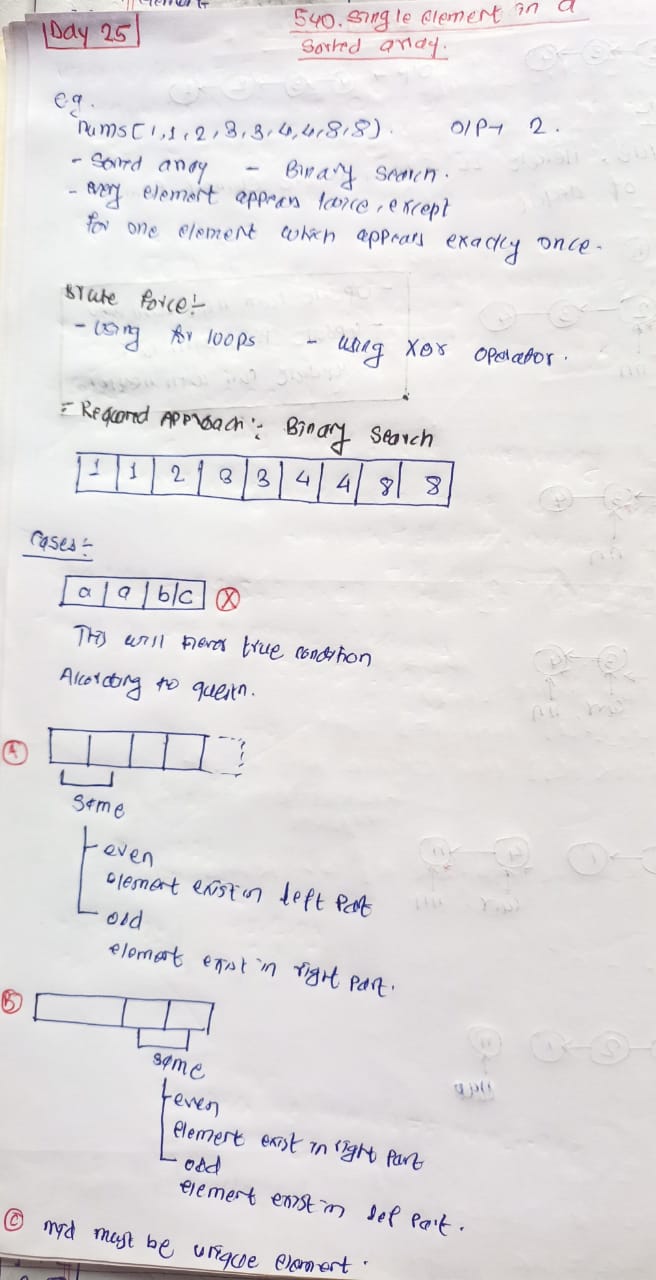 Day 25
540. Single element in a
Sorted array.
e.g.
nums [1,1,2,3,3,4,4,8,8). O/P→ 2.
- Sorted array - Binary Search.
- every element appears twice, except
for one element which appears exactly once.
Brute force:-
- Using for loops - using XOR operator.
- Required Approach:- Binary Search
1 1 2 3 3 4 4 8 8
Cases:-
a a b c X
This will never true condition
According to questn.
A
Same
even
element exist in left Part
odd
element exist in right part.
B
same
even
element exist in right Part
odd
element exist in lef Part.
C mid must be unique element.